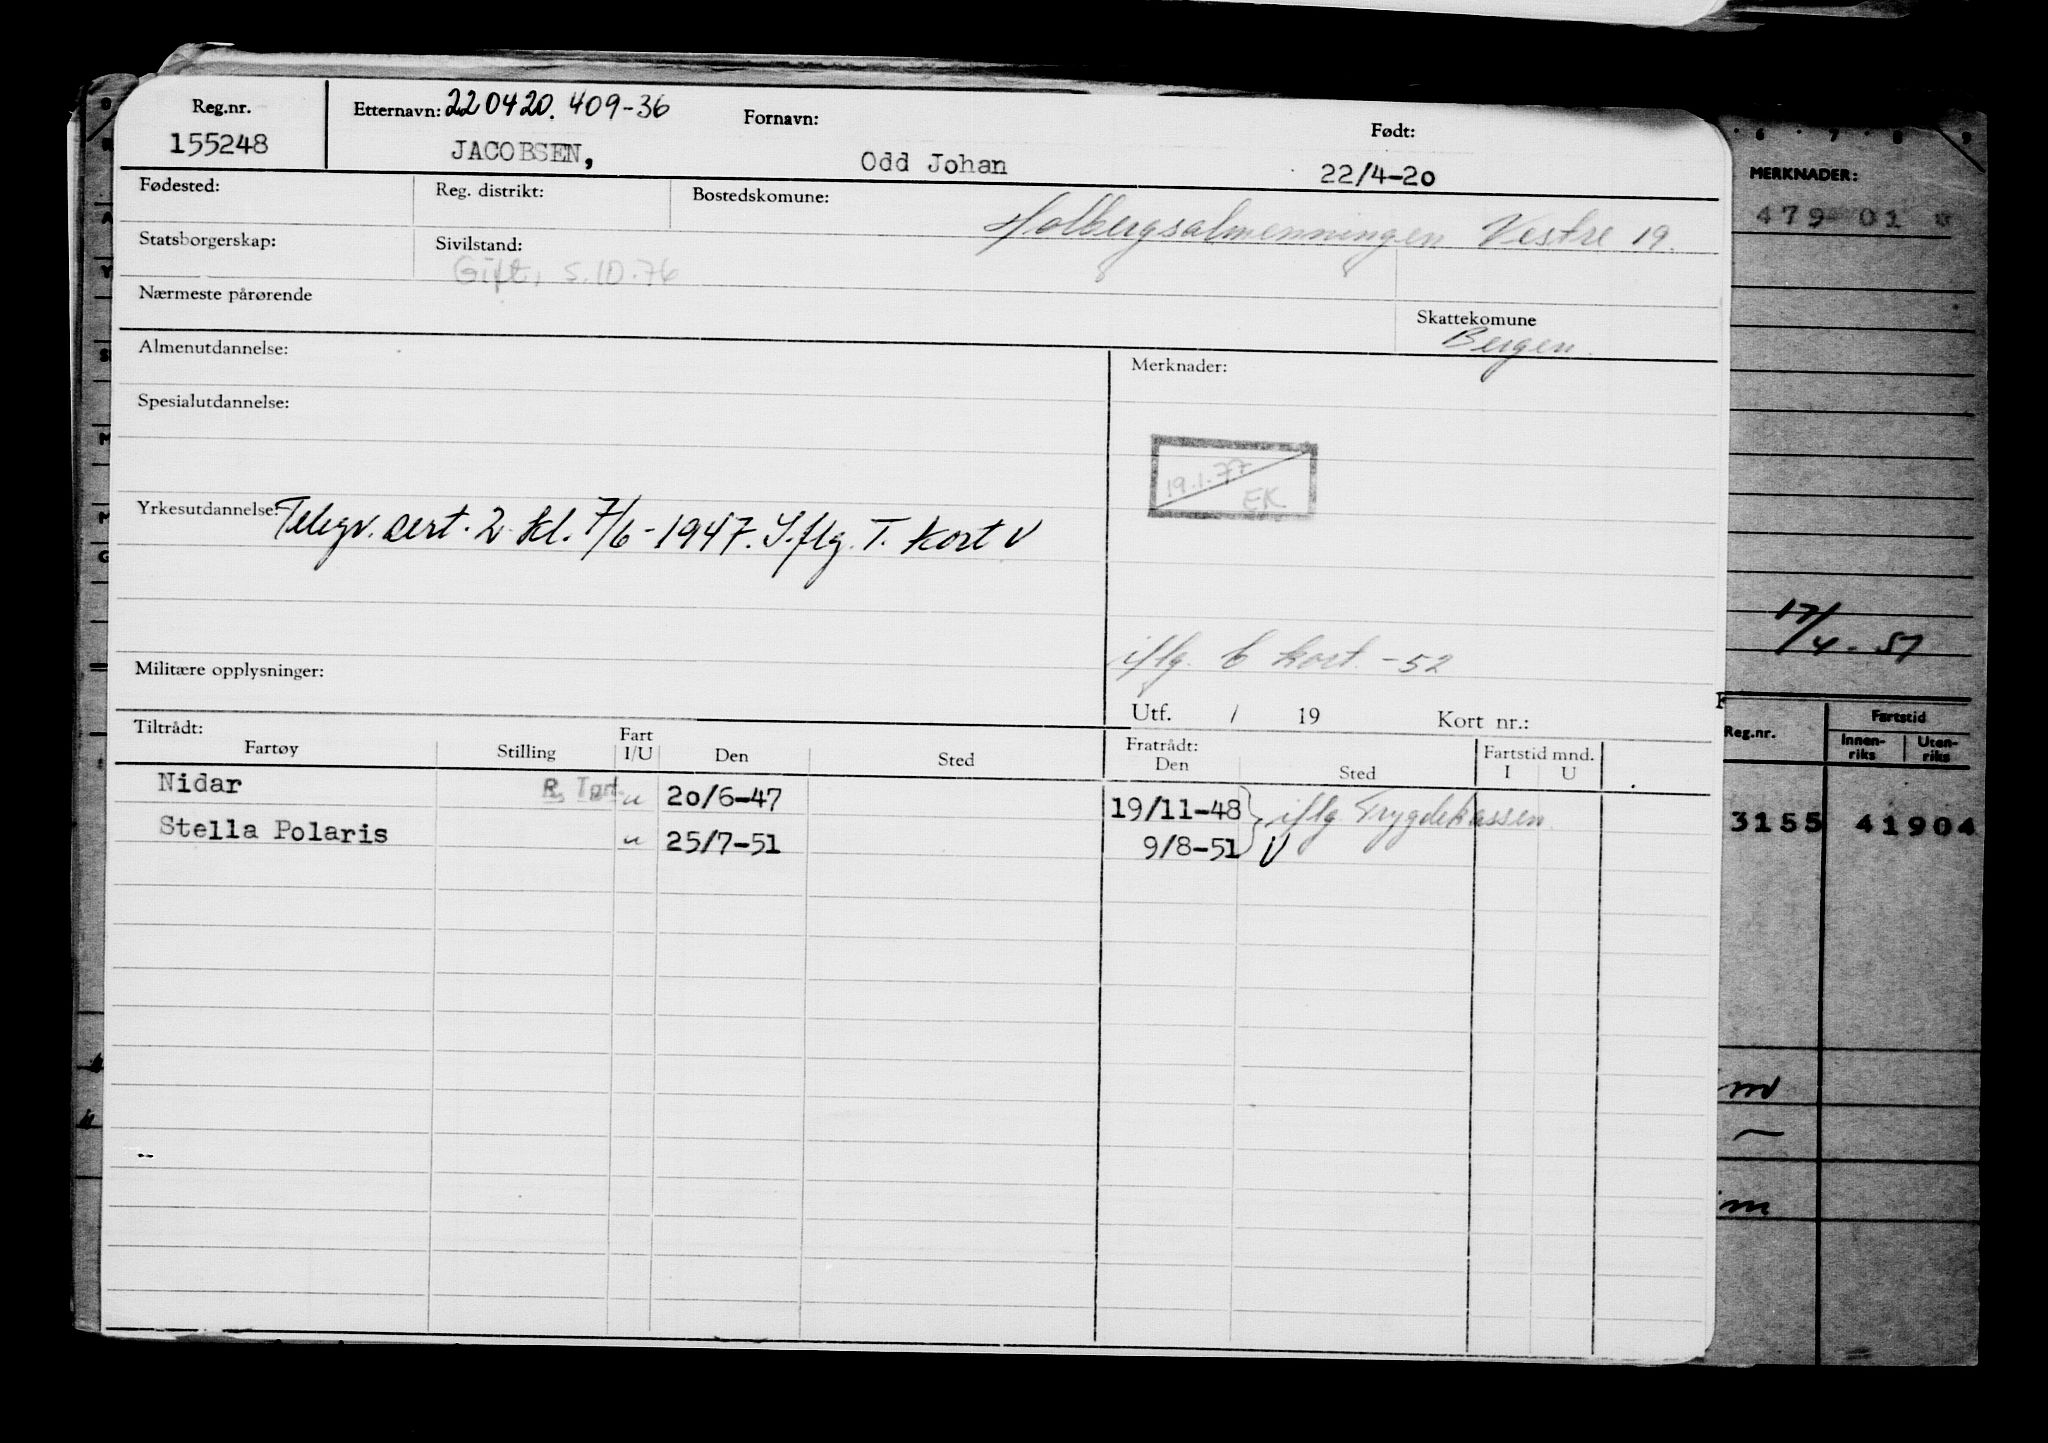 Reg.nr. Etternavn: 220420. 409-36 Fornavn: Født:
155248 JACOBSEN, Odd Johan 22/4-20
Fødested: Reg. distrikt: Bostedskomune: Holbergsalmenningen Vestre 19.
Statsborgerskap: Sivilstand:
Gift, 5.10.76
Nærmeste pårørende Skattekomune
Bergen.
Almenutdannelse: Merknader:
Spesialutdannelse:
19.1.77
EK
Yrkesutdannelse: Telegr. cert. 2. kl. 7/6-1947. I.flg. T. Kort V
iflg. kort. -52
Militære opplysninger:
Utf. / 19 Kort nr.:
Tiltrådt: Fratrådt:
Fartøy Stilling Fart I/U Den Sted Den Sted Fartstid mnd. I U
Nidar u 20/6-47 19/11-48 iflg Trygdekassen
Stella Polaris u 25/7-51 9/8-51 V
6 7 8 9
MERKNADER:
479 01
17/4-51
Reg.nr. Fartstid
Innen-riks Uten-riks
3155 41904